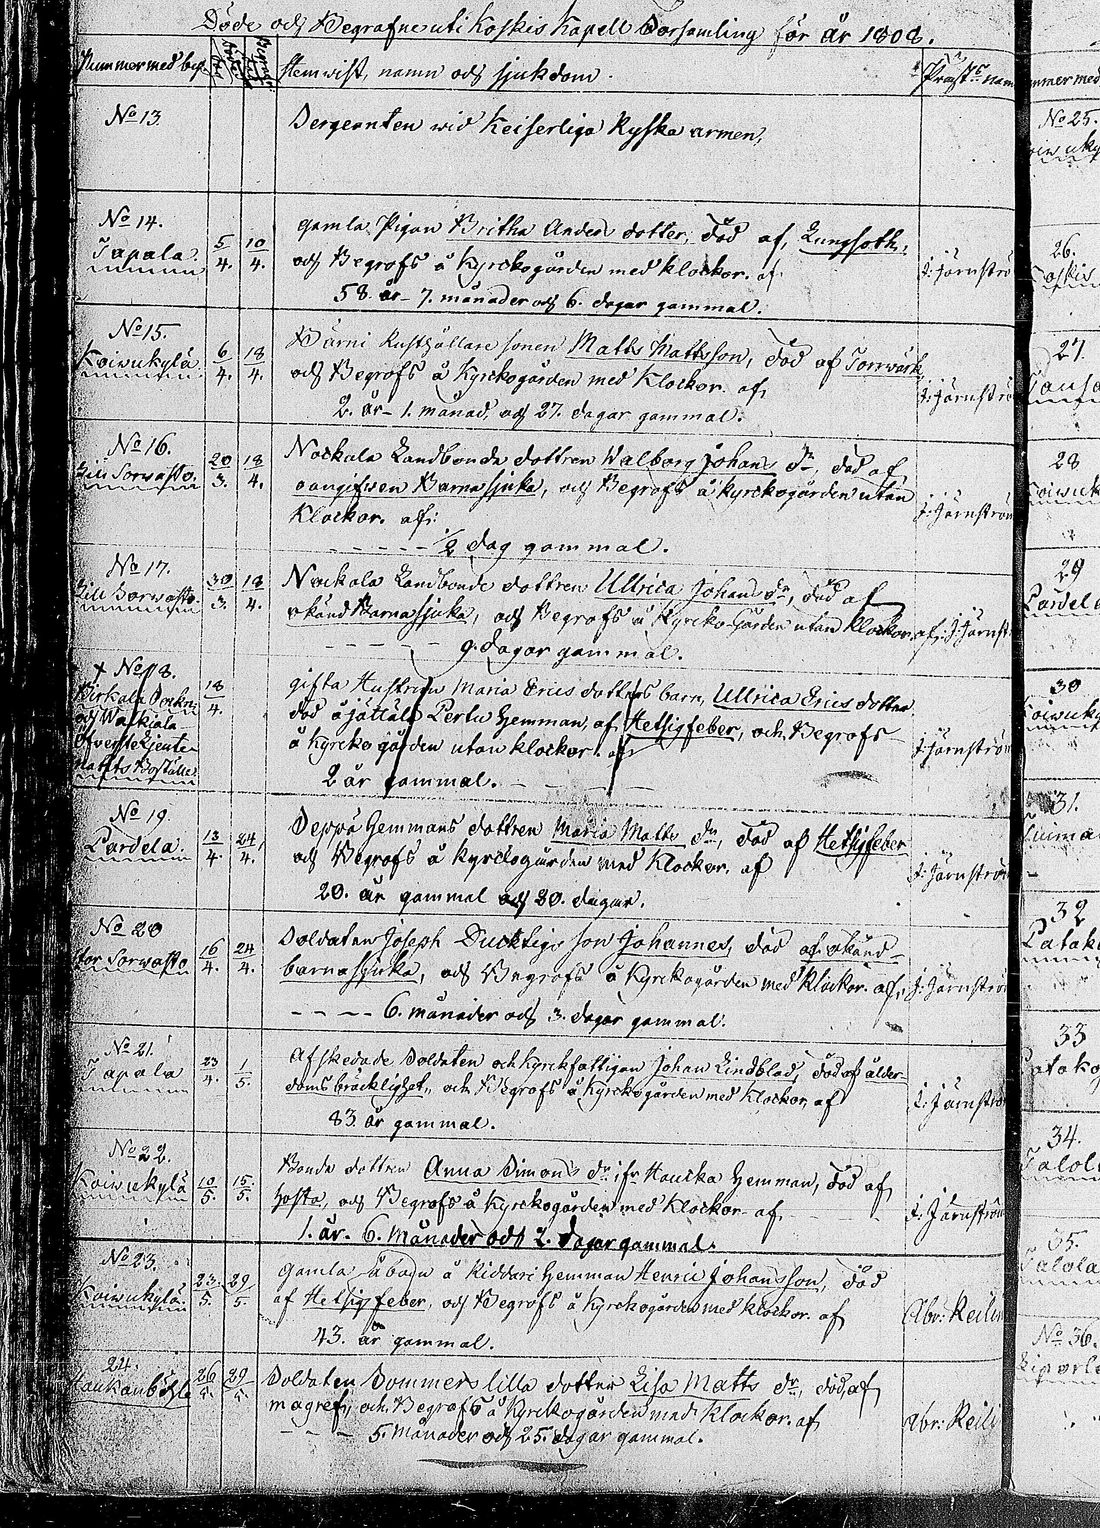 Döde och Begrafne uti Koskis Kapell Församling för år 1808.
Nummer med by.
Hemvist, namn och sjukdom.
Präst:s namn
No 13.
Sergeanten wid Keiserliga Ryska armen,
No 14.
Tapala
5/4. 10/4.
gamla Pigan Britha Anders dotter, död af, Lungsoth,
och Begrofs å Kyrckogården med klockor. af
58. år - 7. månader och 6. dagar gammal.
J: Järnströ
No 15.
Koiwukylä
6/4. 18/4.
Bärni Rusthållare sonen Matts Mattsson, död af Torrwärk
och Begrofs å Kyrckogården med Klockor. af,
2. år - 1. månad, och 27. dagar gammal.
J: Järnströ
No 16.
Lill Sorwasto.
20/3. 18/4.
Nockala Landbonde dottren Walborg Johans dr, död af
oangifwen Barnasjuka, och Begrofs å kyrckogården utan
Klockor. af:
- - - - - 1/2 dag gammal.
J: Järnström
No 17.
Lill Sorwasto.
30/3. 18/4.
Nockala Landbonde dottren Ullrica Johans dr, död af
okänd Barnasjuka, och Begrofs å Kyrcko-Gården utan klockor. af,
- - - - - 9. dagar gammal.
J: Järnst
+ No 18.
och Walkiala
Öfverstelieute-
nants Boställe
18/4.
gifta Hustrun Maria Erics dotters barn, Ullrica Erics dotter
död å jättälä Pertu Hemman, af Hetsigfeber, och Begrofs
å Kyrckogården utan klockor. af
2 år gammal. - - - -
J: Järnströ
No 19.
Pardela.
13/4. 24/4.
Seppä Hemmans dottren Maria Matts dr, död af Hetsigfeber
och Begrofs å kyrckogården med Klockor. af
20. år gammal och 20. dagar.
J: Järnströ
No 20
Stor Sorwasto
16/4. 24/4.
Soldaten Joseph Ducktigs son Johannes, död af okänd
barnasjuka, och Begrofs å Kyrckogården med klockor. af,
- - - - 6. månader och 3. dagar gammal.
J: Järnströ
No 21.
Tapala
23/4. 1/5.
Afskedade Soldaten och Kyrckfattigan Johan Lindblad, död af ålder-
doms bräcklighet, och Begrofs å Kyrckogården med Klockor, af
83. år gammal.
J: Järnströ
No 22.
Koiwukylä
10/5. 15/5.
Bonde dottren Anna Simons dr ifr Haucka Hemman, död af,
hosta, och Begrofs å Kyrckogården med Klockor. af
1. år. 6. månader och 2. dagar gammal.
J: Järnströ
No 23.
Koiwukylä
23/5. 29/5.
gamla å Riddari Hemman Henric Johansson, död
af Hetsigfeber, och Begrofs å Kyrckogården med klockor. af
43. år gammal.
Abr: Reilin
24.
26/5. 29/5.
Soldaten Sommers lilla dotter Lisa Matts dr, död af
magref, och Begrofs å Kyrckogården med Klockor. af
- - - 5. månader och 25. dagar gammal.
Abr: Reili
nmer med
No 25.
26.
oskis
27.
28
Koiwuk
29
Pardela
30
Koiwuky
31.
32
Patako
33
Patako
34.
Talol
35.
Talola
No 36.